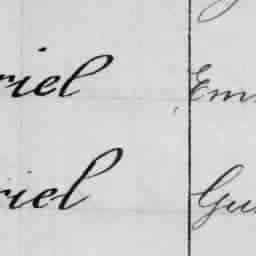 riel Em
riel Gu